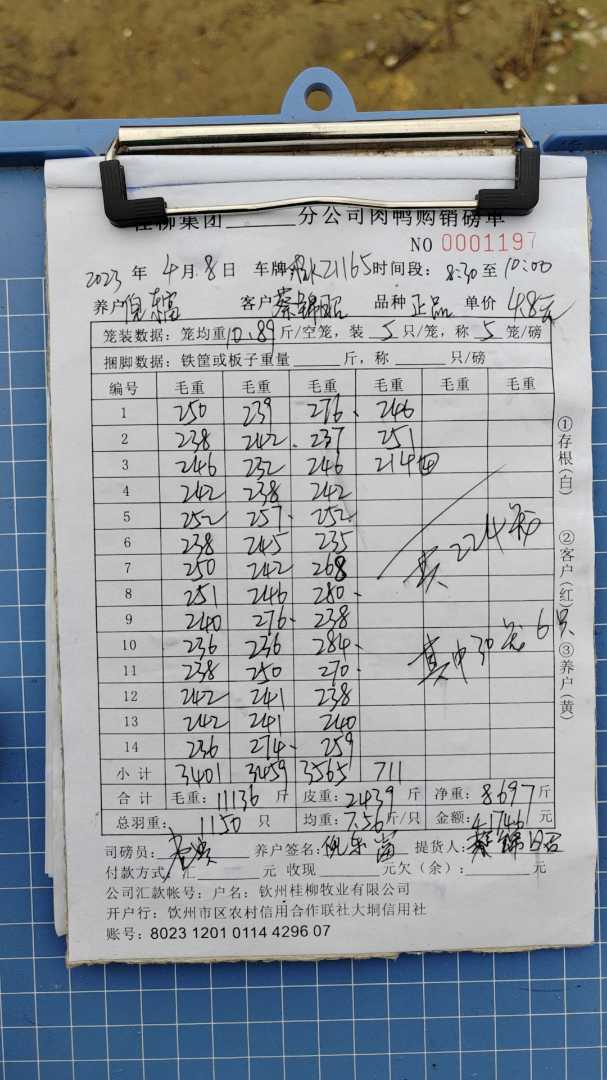 柳集团______分公司肉鸭购销磅单
NO 0001197
2023 年 4 月 8 日 车牌 21165 时间段: 8:30 至 10:00
养户 倪 客户 蔡锦昭 品种 正品 单价 4.8元
笼装数据: 笼均重 10.89 斤/空笼, 装 5 只/笼, 称 5 笼/磅
捆脚数据: 铁筐或板子重量______斤, 称______只/磅
编号 毛重 毛重 毛重 毛重 毛重 毛重
1 250 239 276 246
2 238 242 237 251
3 246 232 246 214
4 242 238 242
5 252 257 252
6 238 245 235
7 250 242 268
8 251 246 280
9 240 276 238
10 236 236 284
11 238 250 270
12 242 241 238
13 242 241 240
14 236 274 259
共224笼
其中30笼6只
小计 3401 3459 3565 711
合计 毛重: 11136 斤 皮重: 2439 斤 净重: 8697 斤
总羽重: 1150 只 均重: 7.56 斤/只 金额: 41746 元
司磅员: 养户签名: 倪 提货人: 蔡锦昭
付款方式: 汇______元 收现______元欠(余): ______元
公司汇款帐号: 户名: 钦州桂柳牧业有限公司
开户行: 饮州市区农村信用合作联社大垌信用社
账号: 8023 1201 0114 4296 07
①存根(白) ②客户(红) ③养户(黄)